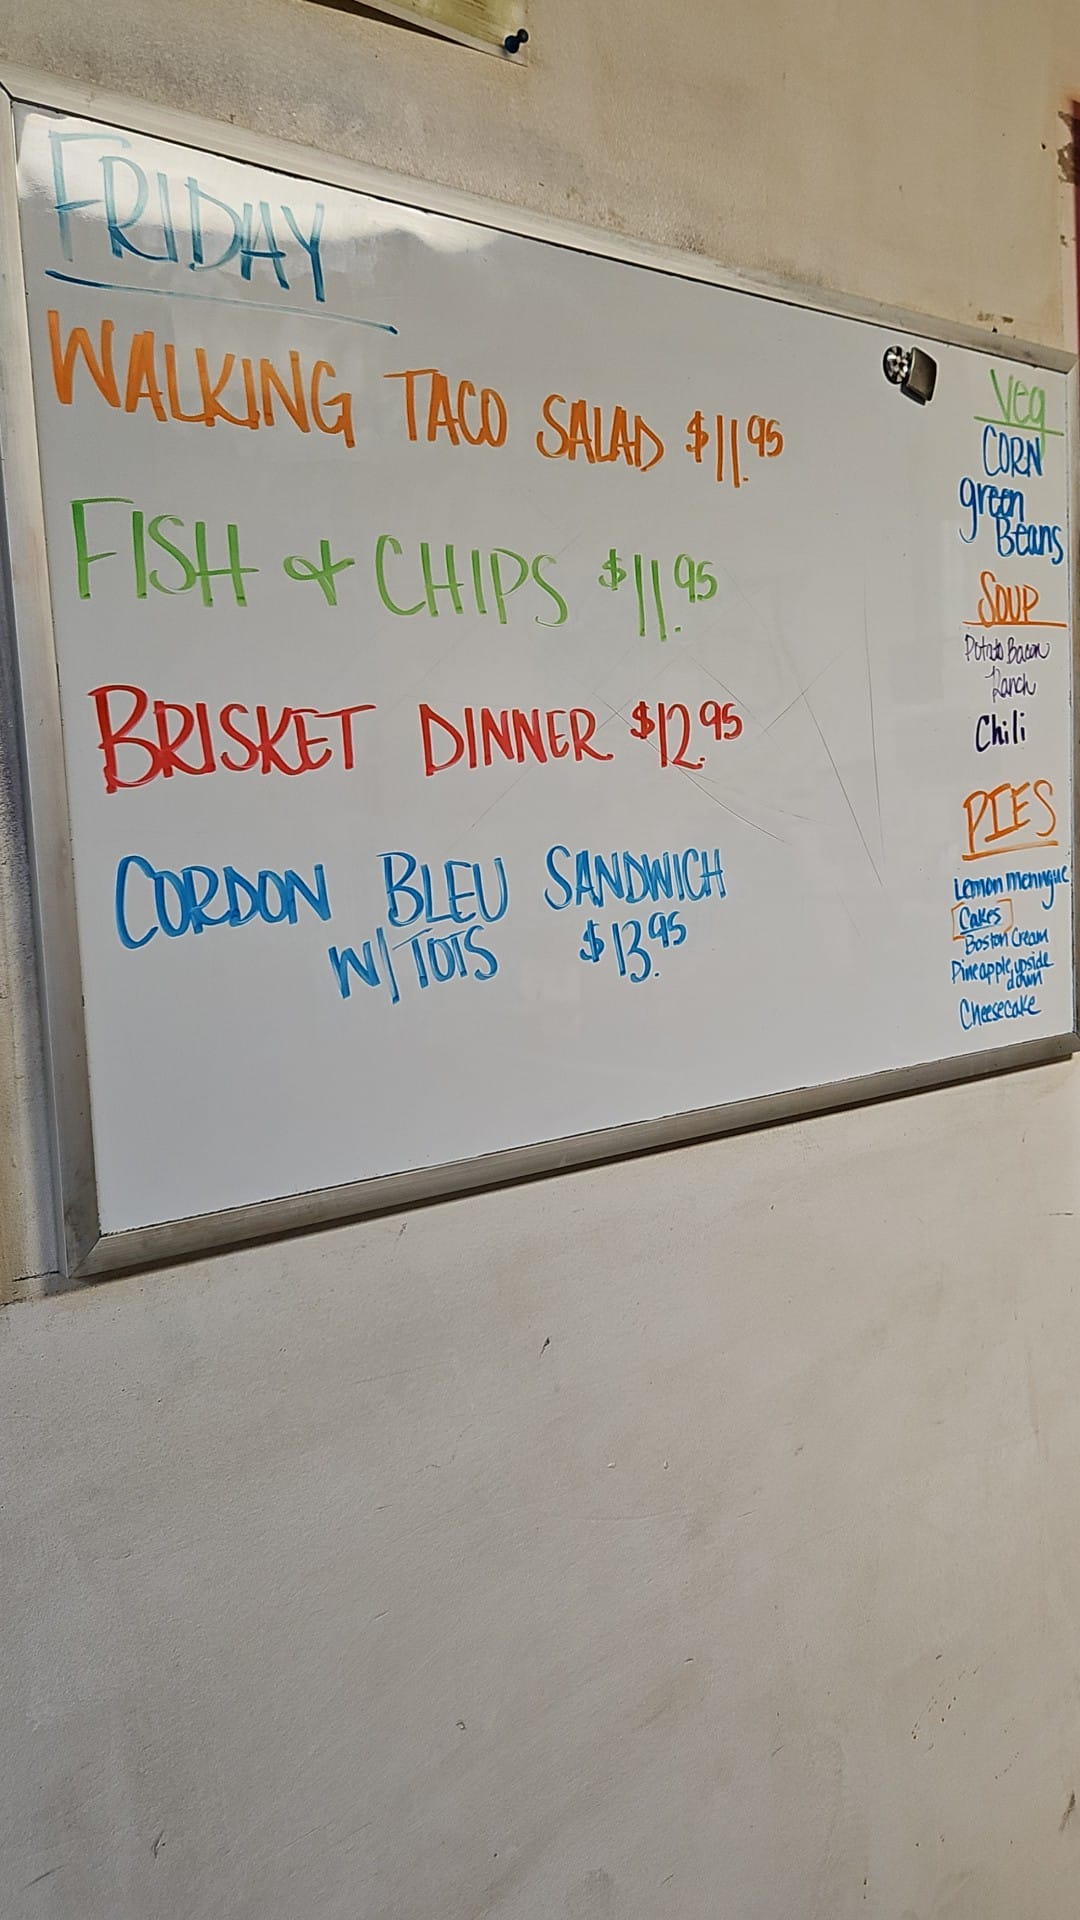 FRIDAY
WALKING TACO SALAD $11.95
FISH & CHIPS $11.95
BRISKET DINNER $12.95
CORDON BLEU SANDWICH
W/TOTS $13.95
Veg
CORN
green
Beans
SOUP
Potato Bacon
Ranch
Chili
PIES
Lemon Meringue
Cakes
Boston Cream
Pineapple upside
down
Cheesecake